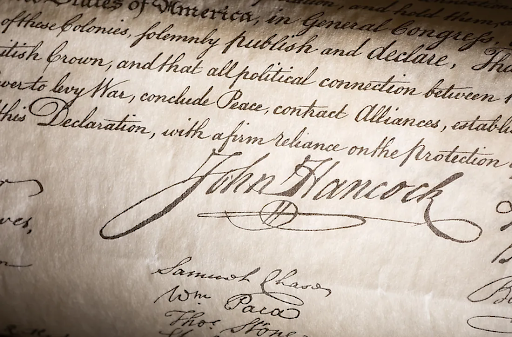 States of America, in General Congress,
of these Colonies, solemnly publish and declare, Tha
itish Crown, and that all political connection between
wer to levy War, conclude Peace, contract Alliances, establi
this Declaration, with a firm reliance on the protection
John Hancock
Samuel Chase
Wm Paca
Thos Stone